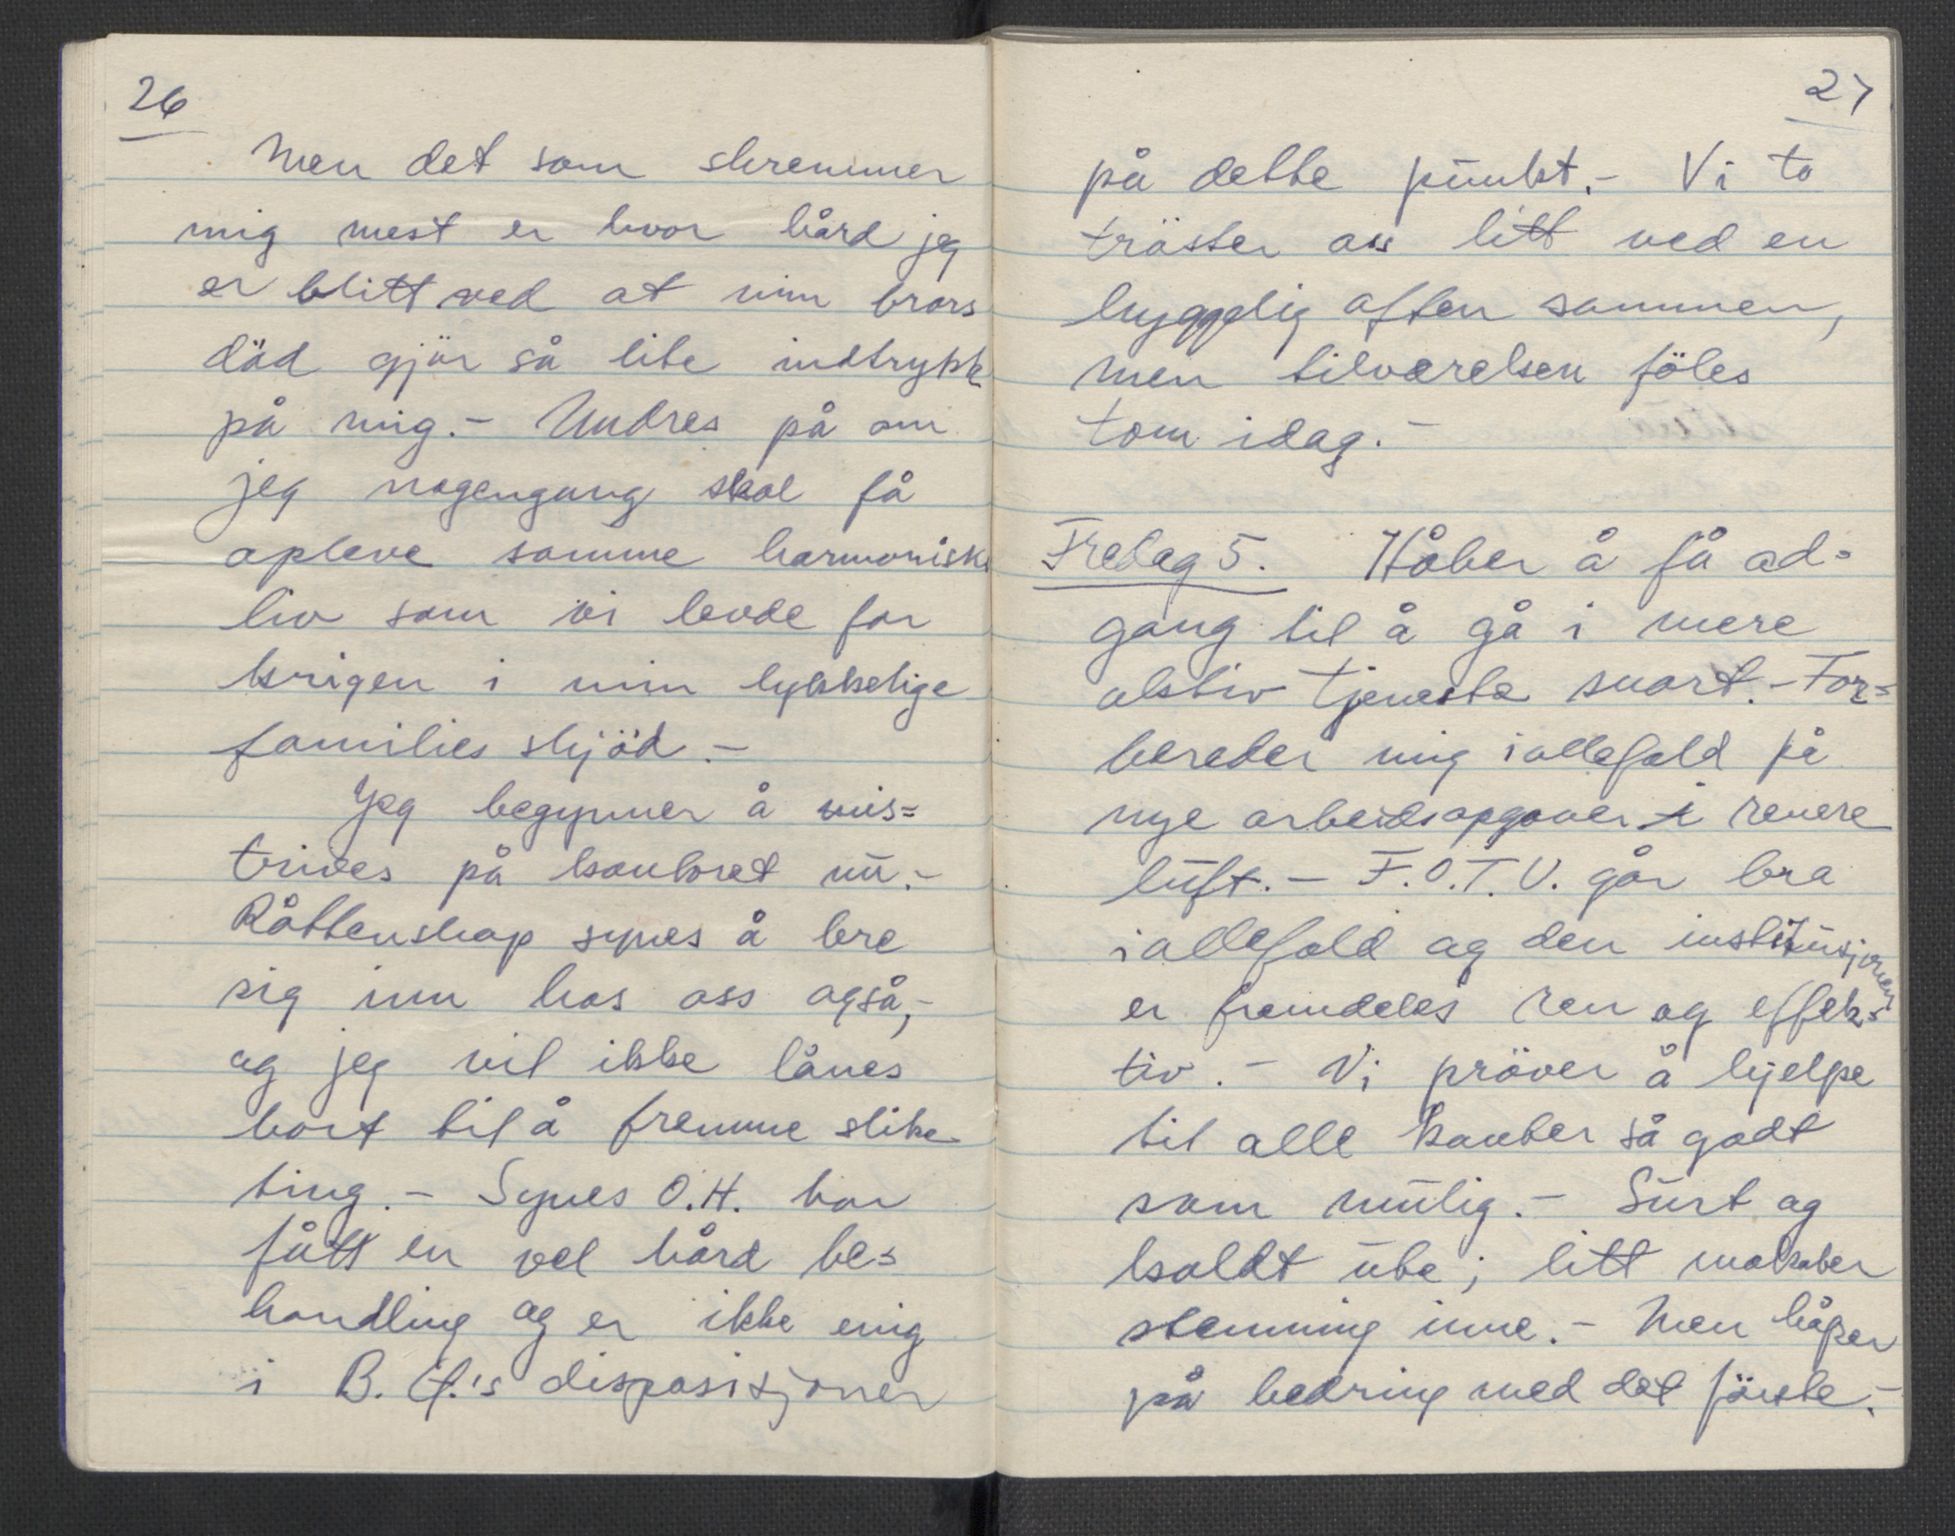 26
Men det som skremmer
mig mest er hvor hård jeg
er blitt ved at min brors
död gjör så lite indtrykk
på mig. - Undres på om
jeg nogengang skal få
opleve samme harmoniske
liv som vi levde for
krigen i min lykkelige
families skjöd. -
Jeg begynner å mis=
trives på kontoret nū. -
Råttenskap synes å bre
sig inn hos oss også, -
og jeg vil ikke lånes
bort til å fremme slike
ting. - Synes O.H. har
fått en vel hård be=
handling og er ikke enig
i B. 's disposisjoner
27
på dette pūnkt. - Vi to
tröster oss litt ved en
hyggelig aften sammen,
men tilværelsen föles
tom idag. -
Fredag 5. Håber å få ad=
gang til å gå i mere
aktiv tjeneste snart. - For=
bereder mig iallefald på
nye arbeidsopgaver i renere
lūft. - F.O.T.U. går bra
iallefald og den institūsjonen
er fremdeles ren og effek=
tiv. - Vi pröver å hjelpe
til alle kanter så godt
som mūlig. - Sūrt og
koldt ūte; litt makaber
stemning inne. - Men håper
på bedring med det förste. -